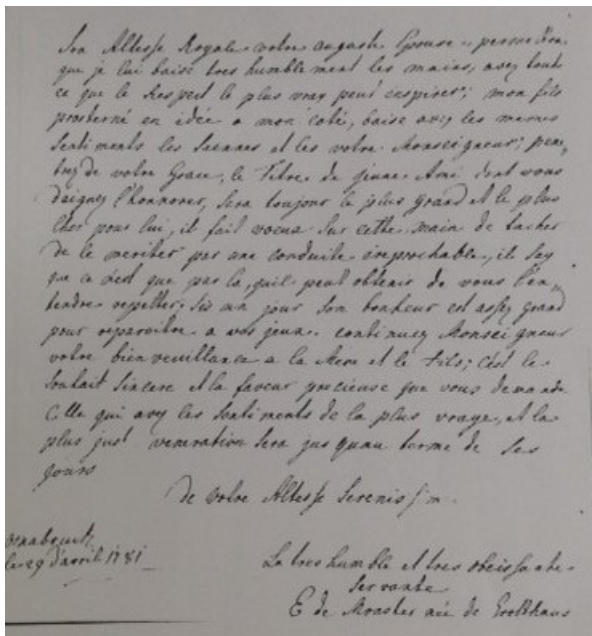 Son Altesse Royale votre auguste Epouse,
que je lui baise tres humblement les mains, avez tout
ce que le Respect le plus vray peut enspirer; mon fils
prosterné en idée a mon coté, baise avez les memes
sentiments les siennes et les votre Monseigneur;
de votre Grace, le Titre de jeune Ami dont vous
daignez l'honnorer, sera toujour le plus grand et le plus
cher pour lui, il fait voeux sur cette main de tacher
de le meriter par une conduite ireprochable, il say
que ce n'est que par la, quil peut obtenir de vous l'en
tendre repetter, sis un jour son bonheur est assez grand
pour reparoitre a vos jeux. continuez Monseigneur
votre bienveuillance a la Mere et le fils; c'est le
souhait sincere et la faveur precieuse que vous demande
Celle qui avez les sentiments de la plus vraye, et la
plus just veneration sera jusquau terme de ses
jours
de votre Altesse Serenissim.
Osnabruck
le 29 d'avril 1781
La tres humble et tres obeissante
servante
E de née de